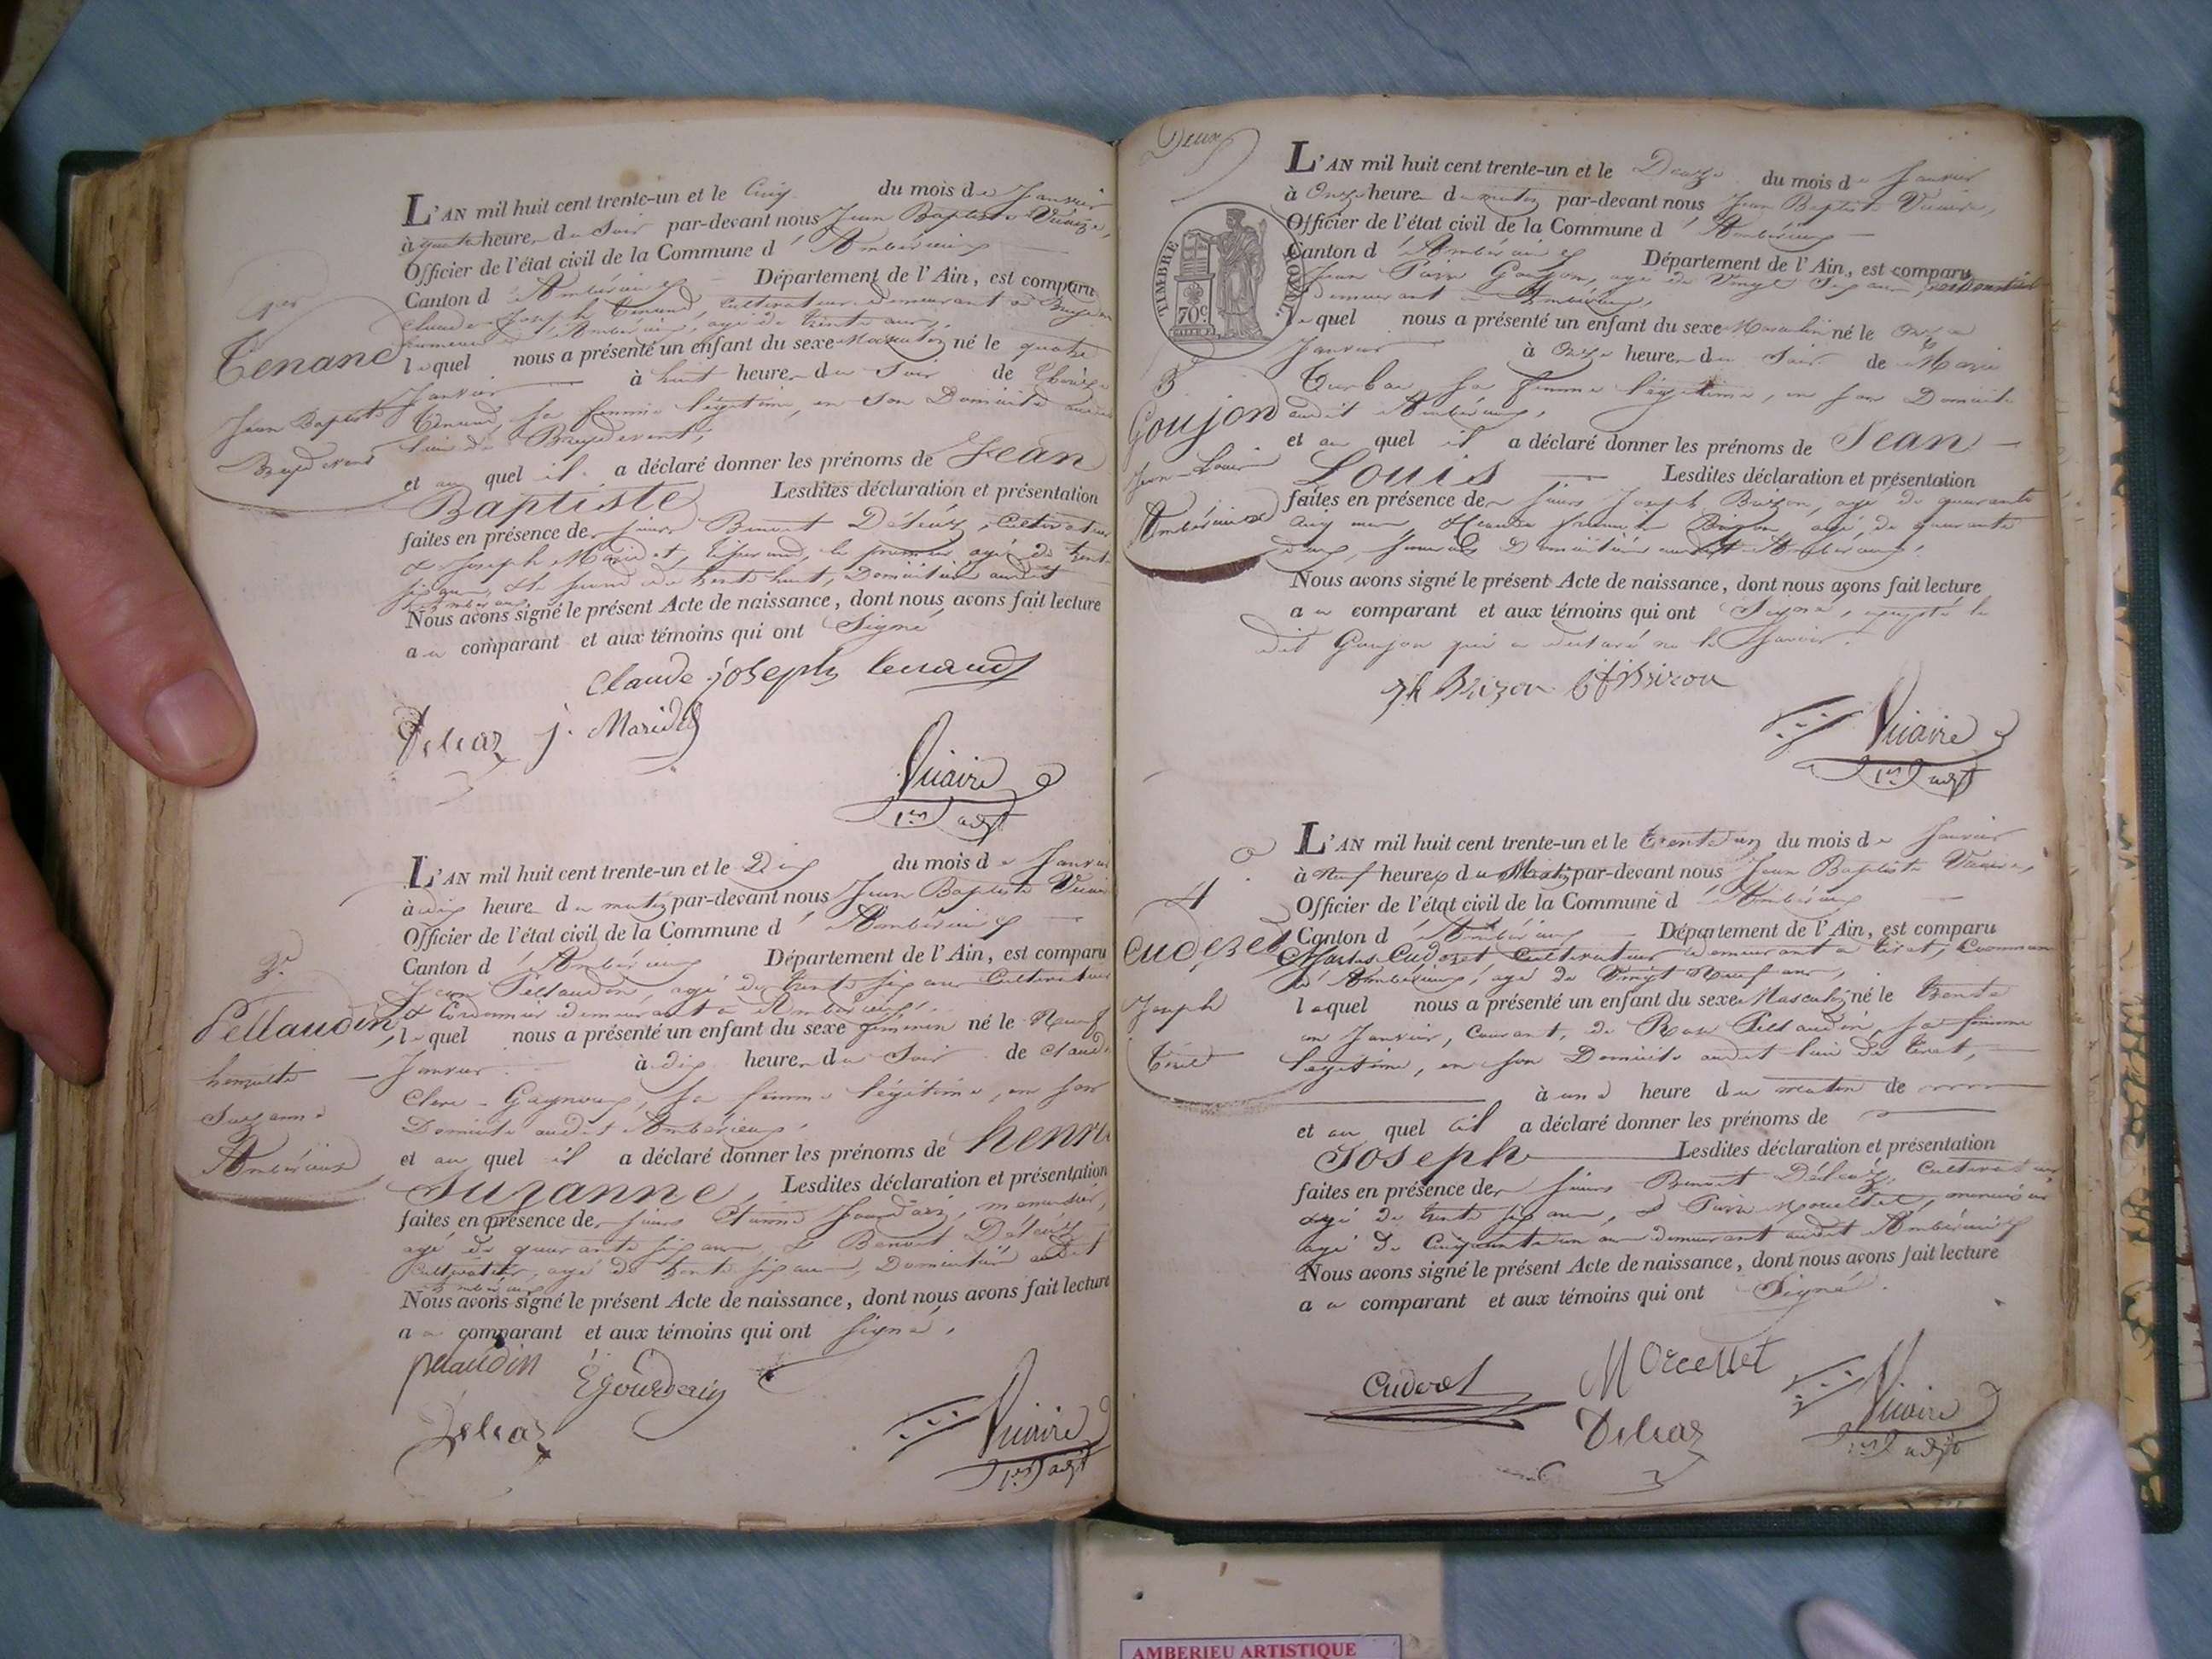 1er
Tenand
Jean Baptiste
L'AN mil huit cent trente-un et le Cinq du mois de Janvier
à quatre heures du Soir par-devant nous Jean Baptiste Vicaire,
Officier de l'état civil de la Commune d'Ambérieux
Canton d'Ambérieux Département de l'Ain, est comparu
Claude Joseph Tenand, Cultivateur demeurant à
d'Ambérieux, agé de trente ans,
lequel nous a présenté un enfant du sexe Masculin né le quatre
Janvier à huit heures du Soir de
Tenand, sa femme légitime, en son Domicile
lieu de
et auquel il a déclaré donner les prénoms de Jean
Baptiste Lesdites déclaration et présentation
faites en présence des sieurs Benoit Déléaz, Cultivateur
& Joseph Maridet, le premier agé de trente
six ans, & le second de trente huit, Domiciliés audit
Ambérieux
Nous avons signé le présent Acte de naissance, dont nous avons fait lecture
au comparant et aux témoins qui ont Signé
Claude joseph tenand
Deleaz j. Maridet
Vicaire
1er adjt
2e
Pellaudin,
henriette
Suzanne
Ambérieux
L'AN mil huit cent trente-un et le Dix du mois de Janvier
à dix heures du matin par-devant nous Jean Baptiste Vicaire
Officier de l'état civil de la Commune d'Ambérieux
Canton d'Ambérieux Département de l'Ain, est comparu
Jean Pellaudin, agé de trente six ans Cultivateur
& Cordonnier demeurant à Ambérieux,
lequel nous a présenté un enfant du sexe féminin né le Neuf
Janvier à dix heures du Soir de Claud
sa femme légitime, en son
Domicile audit Ambérieux,
et auquel il a déclaré donner les prénoms de henri
Suzanne, Lesdites déclaration et présentation
faites en présence des sieurs Etienne Jourdain, menuisier,
agé de quarante six ans, & Benoit Déléaz
Cultivateur, agé de trente six ans, Domiciliés audit
Ambérieux
Nous avons signé le présent Acte de naissance, dont nous avons fait lecture
au comparant et aux témoins qui ont signé,
pellaudin
Deleaz
Vicaire
1er adjt
Deux
TIMBRE ROYAL
70c
3e
Goujon
Jean-Louis
Ambérieux
L'AN mil huit cent trente-un et le Douze du mois de Janvier
à Onze heures du matin par-devant nous Jean Baptiste Vicaire,
Officier de l'état civil de la Commune d'Ambérieux
Canton d'Ambérieux Département de l'Ain, est comparu
Jean Pierre Goujon, agé de Vingt Six ans,
demeurant à Ambérieux,
lequel nous a présenté un enfant du sexe Masculin né le Onze
Janvier à Onze heures du Soir de Marie
sa femme légitime, en son Domicile
audit Ambérieux,
et auquel il a déclaré donner les prénoms de Jean
Louis Lesdites déclaration et présentation
faites en présence des sieurs Joseph Brizon, agé de quarante
cinq ans, & Claude Brizon, agé de quarante
Domiciliés audit Ambérieux,
Nous avons signé le présent Acte de naissance, dont nous avons fait lecture
au comparant et aux témoins qui ont Signé, excepté le
dit Goujon qui a déclaré ne le Savoir.
Jh Brizon Brizon
Vicaire
1er adjt
4
Cuderet
Joseph
Tiret
L'AN mil huit cent trente-un et le trente un du mois de Janvier
à Neuf heures du Matin par-devant nous Jean Baptiste Vicaire,
Officier de l'état civil de la Commune d'Ambérieux
Canton d'Ambérieux Département de l'Ain, est comparu
Cuderet Cultivateur demeurant à tiret, Commune
d'Ambérieux, agé de Vingt Neuf ans,
lequel nous a présenté un enfant du sexe Masculin né le trente
un Janvier, Courant, de Rose Pellaudin, sa femme
légitime, en son Domicile audit lieu de tiret,
à une heure du matin de
et auquel il a déclaré donner les prénoms de
Joseph Lesdites déclaration et présentation
faites en présence des sieurs Benoit Déléaz, Cultivateur
agé de trente six ans, & Pierre menuisier
agé de Cinquante un ans demeurant audit Ambérieux
Nous avons signé le présent Acte de naissance, dont nous avons fait lecture
au comparant et aux témoins qui ont Signé.
Cuderet
Deleaz
Vicaire
1er adjt
AMBERIEU ARTISTIQUE